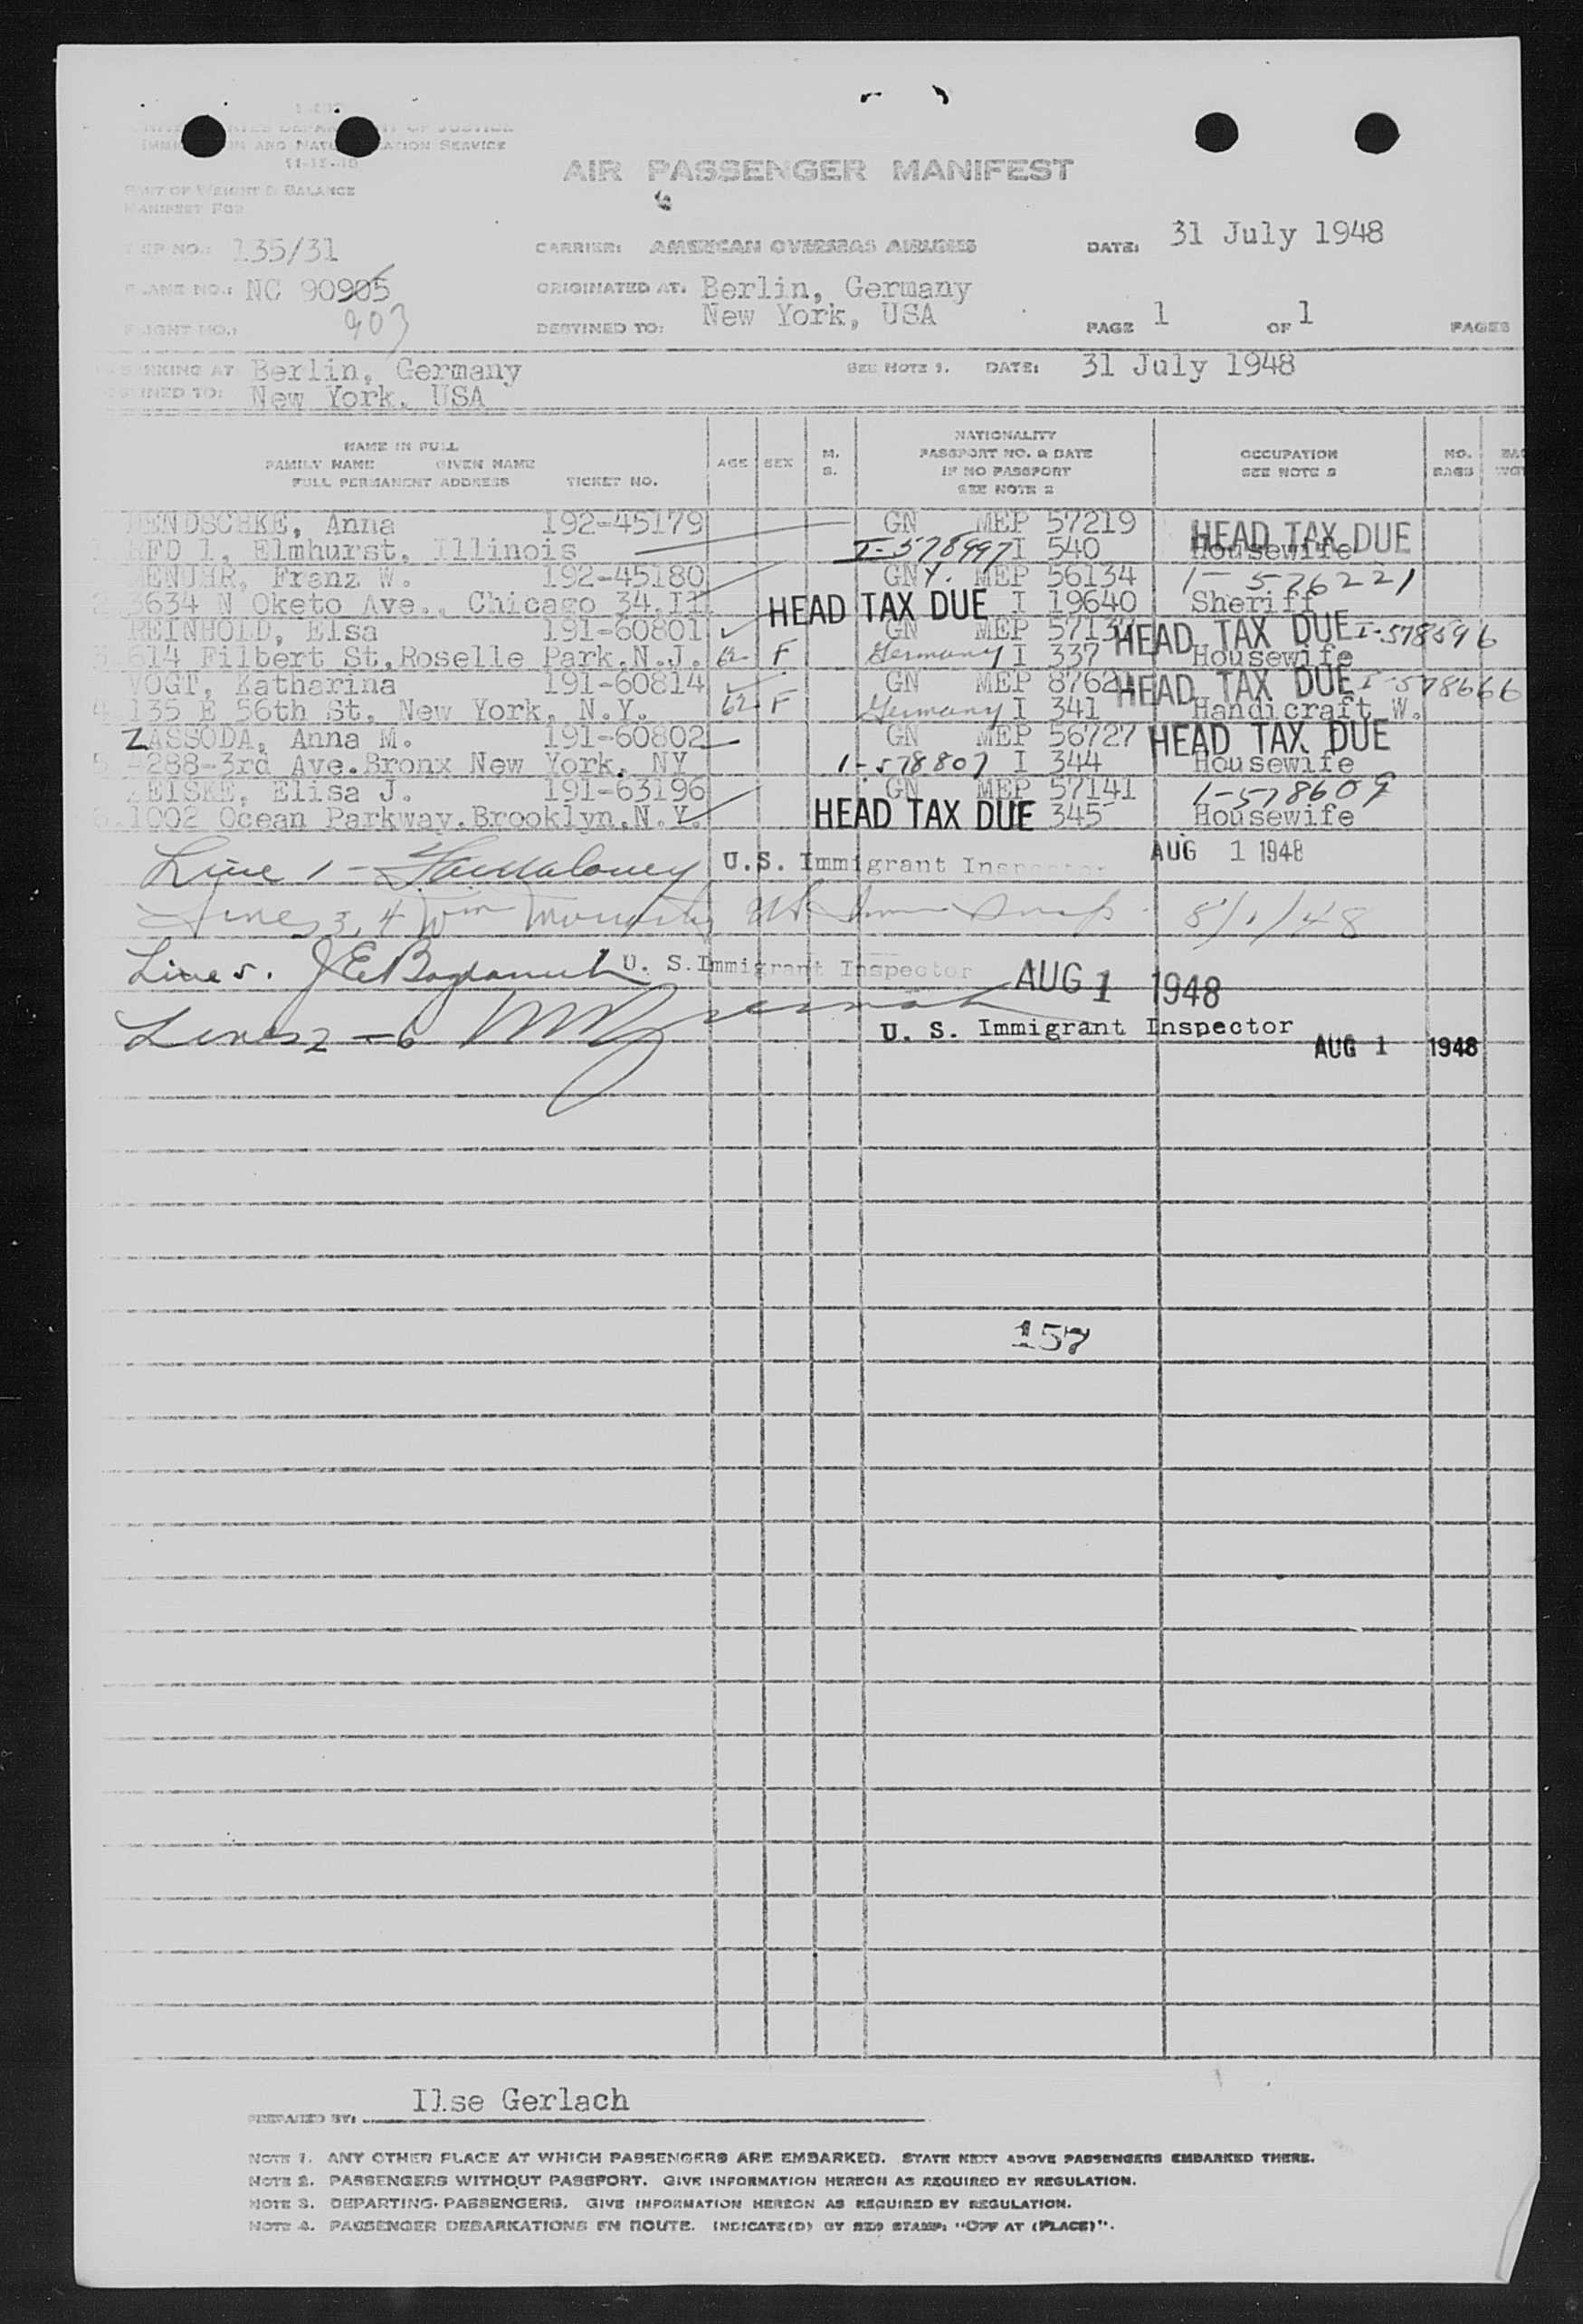 AIR PASSENGER MANIFEST
PART OF WEIGHT & BALANCE
MANIFEST FOR
135/31 CARRIER: AMERICAN OVERSEAS AIRLINES DATE: 31 July 1948
NC 90905 ORIGINATED AT: Berlin, Germany
903 DESTINED TO: New York, USA PAGE 1 OF 1 PAGES
Berlin, Germany SEE NOTE 1. DATE: 31 July 1948
New York, USA
NAME IN FULL
FAMILY NAME GIVEN NAME
FULL PERMANENT ADDRESS TICKET NO.
AGE SEX M. S.
NATIONALITY
PASSPORT NO. & DATE
IF NO PASSPORT
SEE NOTE 2
OCCUPATION
SEE NOTE 3
NO. BAGS
Anna 192-45179 GN MEP 57219 HEAD TAX DUE
RFD 1, Elmhurst, Illinois I-578997 I 540 Housewife
Franz W. 192-45180 GNY. MEP 56134 1-576221
3634 N Oketo Ave., Chicago 34, Ill HEAD TAX DUE I 19640 Sheriff
REINHOLD, Elsa 191-60801 GN MEP HEAD TAX DUE I-578596
614 Filbert St, Roselle Park, N.J. 62 F Germany I 337 Housewife
VOGT, Katharina 191-60814 GN MEP HEAD TAX DUE I-578666
4 135 E 56th St, New York, N.Y. 62 F Germany I 341 Handicraft W.
ZASSODA, Anna M. 191-60802 GN MEP 56727 HEAD TAX DUE
5 4288-3rd Ave. Bronx New York, NY 1-578807 I 344 Housewife
ZEISKE, Elisa J. 191-63196 GN MEP 57141 1-578609
6.1002 Ocean Parkway, Brooklyn, N.Y. HEAD TAX DUE 345 Housewife
Line 1 - U.S. Immigrant Inspector AUG 1 1948
Lines 3, 4 Wm 8/1/48
Line 5. U. S. Immigrant Inspector AUG 1 1948
Lines 2 - 6 U. S. Immigrant Inspector AUG 1 1948
157
PREPARED BY: Ilse Gerlach
NOTE 1. ANY OTHER PLACE AT WHICH PASSENGERS ARE EMBARKED. STATE NEXT ABOVE PASSENGERS EMBARKED THERE.
NOTE 2. PASSENGERS WITHOUT PASSPORT. GIVE INFORMATION HEREON AS REQUIRED BY REGULATION.
NOTE 3. DEPARTING PASSENGERS. GIVE INFORMATION HEREON AS REQUIRED BY REGULATION.
NOTE 4. PASSENGER DEBARKATIONS EN ROUTE. INDICATE(D) BY RED STAMP: "OFF AT (PLACE)".